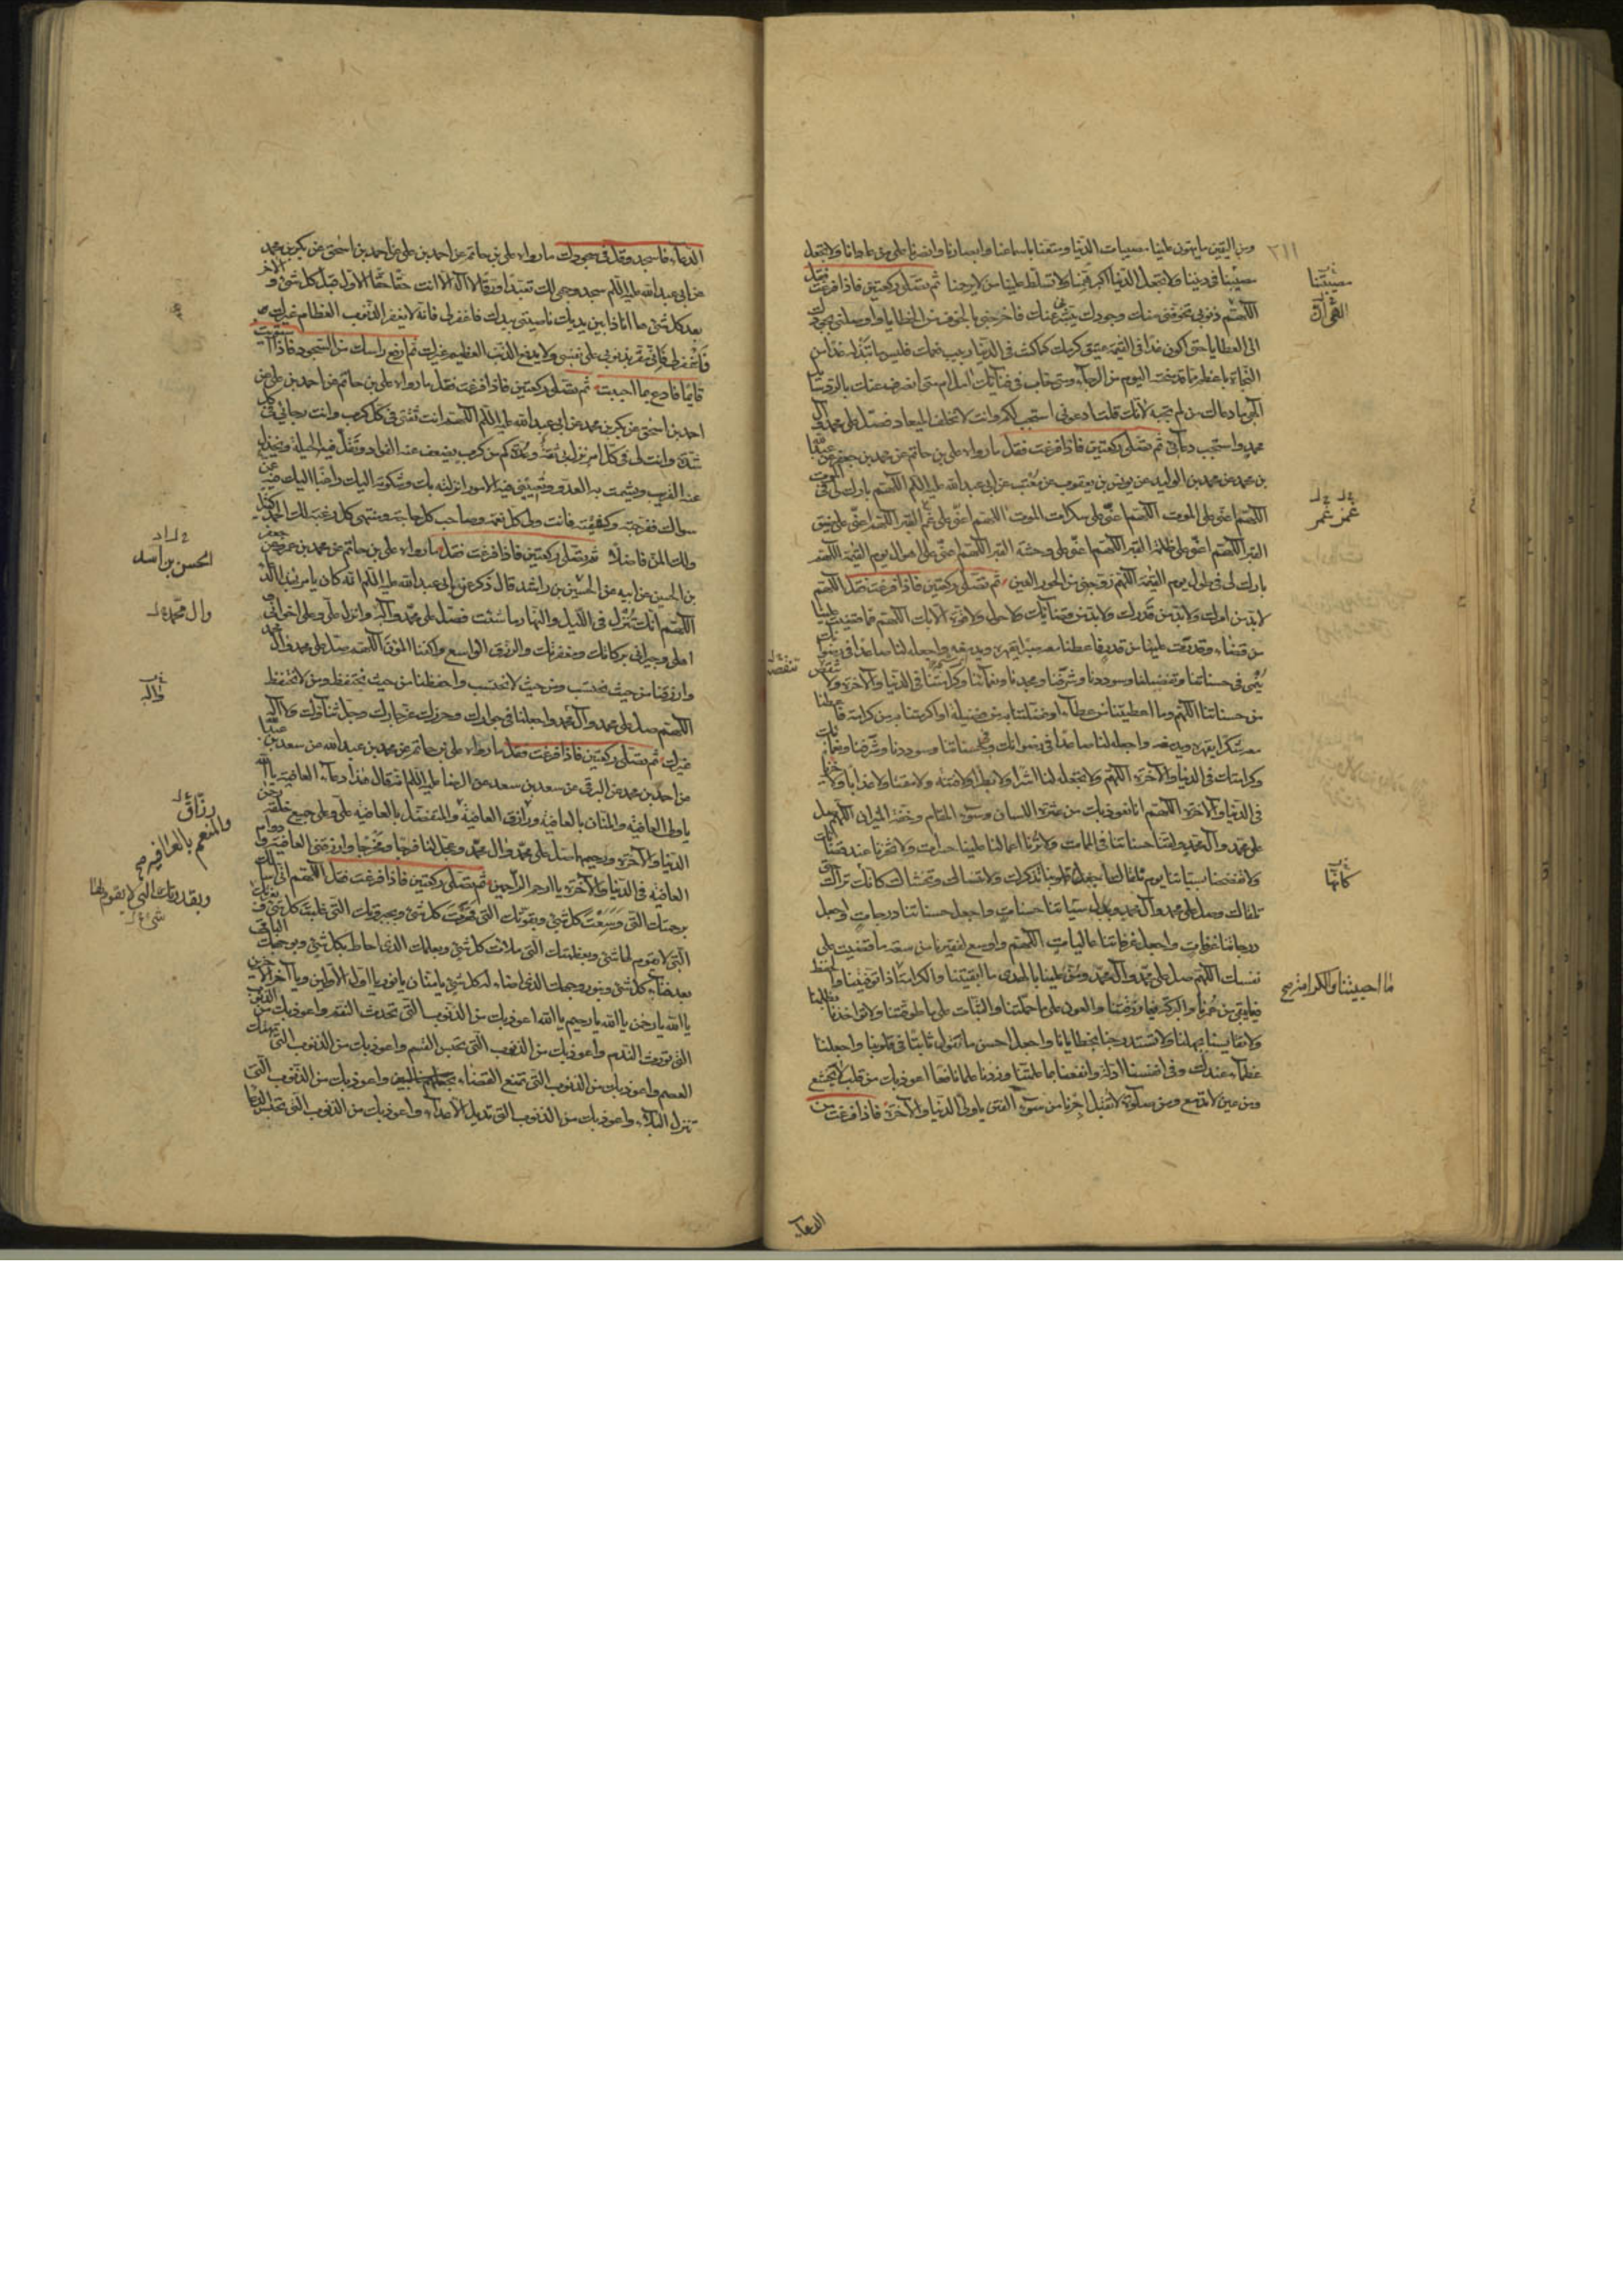 ومن اليقين ما يهون علينا مصيبات الدنيا ومتعنا باسماعنا وابصارنا وانصرنا على من عادانا ولا تجعل
مصيبتنا في ديننا ولا تجعل الدنيا اكبر همنا ولا تسلط علينا من لا يرحمنا ثم تصلى ركعتين فاذا فرغت فقل
اللهم ذنوبى تخوفنى منك وجودك يبشرنى عنك فاخرجنى بالخوف من الخطايا واوصلنى بجودك
الى العطايا حتى اكون غدا في القيمة عتيق كرمك كما كنت في الدنيا ربيب نعمك فليس ما تبذله غدا من
النجاة باعظم مما قد منحته اليوم من الرجاء ومتى خاب في فنائك امل ام متى انصرف عنك بالرد سائل
الهى ما دعاك من لم تجبه لانك قلت ادعونى استجب لكم وانت لا تخلف الميعاد فصل على محمد وآل
محمد واستجب دعائى ثم تصلى ركعتين فاذا فرغت فقل ما رواه على بن حاتم عن محمد بن جعفر عن
بن محمد عن محمد بن الوليد عن يونس بن يعقوب عن ابى عبد الله عليه السلم اللهم بارك لى في الموت
اللهم اعنى على الموت اللهم اعنى على سكرات الموت اللهم اعنى على غم القبر اللهم اعنى على ضيق
القبر اللهم اعنى على ظلمة القبر اللهم اعنى على وحشة القبر اللهم اعنى على اهوال يوم القيمة اللهم
بارك لى في طول يوم القيمة اللهم زوجنى من الحور العين ثم تصلى ركعتين فاذا فرغت فقل اللهم
لا بد من امرك ولا بد من قدرك ولا بد من قضائك ولا حول ولا قوة الا بك اللهم فما قضيت علينا
من قضاء وقدرت علينا من قدر فاعطنا معه صبرا يقهره ويدمغه واجعله لنا صاعدا في رضوانك
ينمى في حسناتنا وتفضيلنا وسوددنا وشرفنا ومجدنا ونعمائنا وكرامتنا في الدنيا والآخرة ولا تنقص
من حسناتنا اللهم وما اعطيتنا من عطاء او فضلتنا به من فضيلة او اكرمتنا به من كرامة فاعطنا
معه شكرا يقهره ويدمغه واجعله لنا صاعدا في رضوانك وفي حسناتنا وسوددنا وشرفنا ونعمائك
وكرامتك في الدنيا والآخرة اللهم ولا تجعله لنا اشرا ولا بطرا ولا فتنة ولا مقتا ولا عذابا ولا خزيا
في الدنيا والآخرة اللهم انا نعوذ بك من عثرة اللسان وسوء المقام وخفة الميزان اللهم صل
على محمد وآل محمد ولقنا حسناتنا في الممات ولا ترنا اعمالنا علينا حسرات ولا تخزنا عند قضائك
ولا تفضحنا بسيئاتنا يوم نلقاك واجعل قلوبنا تذكرك ولا تنساك وتخشاك كانها تراك حتى
تلقاك وصل على محمد وآل محمد وبدل سيئاتنا حسنات واجعل حسناتنا درجات واجعل
درجاتنا غرفات واجعل غرفاتنا عاليات اللهم واوسع لفقيرنا من سعة ما قضيت على
نفسك اللهم صل على محمد وآل محمد ومن علينا بالهدى ما ابقيتنا والكرامة اذا توفيتنا والحفظ
فيما بقى من عمرنا والبركة فيما رزقتنا والعون على ما حملتنا والثبات على ما طوقتنا ولا تؤاخذنا بظلمنا
ولا تقايسنا بجهلنا ولا تستدرجنا بخطايانا واجعل احسن ما نقول ثابتا في قلوبنا واجعلنا
عظماء عندك وفي انفسنا اذلة وانفعنا بما علمتنا وزدنا علما نافعا اعوذ بك من قلب لا يخشع
ومن عين لا تدمع ومن صلوة لا تقبل اجرنا من سوء الفتن يا ولى الدنيا والآخرة فاذا فرغت من
الدعاء
مصيبتنا
غمر غمر
تنقص
كانها
ما احييتنا والكرامة صح
٢١١
الدعاء فاسجد وقل في سجودك ما رواه على بن حاتم عن احمد بن على عن احمد بن اسحق عن بكر بن محمد
عن ابى عبد الله عليه السلم سجد وجهى لك تعبدا ورقا لا اله الا انت حقا حقا الاول قبل كل شئ والآخر
بعد كل شئ ها انا ذا بين يديك ناصيتى بيدك فاغفر لى فانه لا يغفر الذنوب العظام غيرك
فاغفر لى فانى مقر بذنوبى على نفسى ولا يدفع الذنب العظيم غيرك ثم ارفع راسك من السجود فاذا استويت
قايما فادع بما احببت ثم تصلى ركعتين فاذا فرغت فقل ما رواه على بن حاتم عن احمد بن على عن
احمد بن اسحق عن بكر بن محمد عن ابى عبد الله عليه السلم اللهم انت ثقتى في كل كرب وانت رجائى في كل
شدة وانت لى في كل امر نزل بى ثقة وعدة كم من كرب يضعف عنه الفؤاد وتقل فيه الحيلة ويخذل
عنه القريب ويشمت به العدو وتعيينى فيه الامور انزلته بك وشكوته اليك راغبا اليك فيه عن
سواك ففرجته وكشفته وكفيته فانت ولى كل نعمة وصاحب كل حاجة ومنتهى كل رغبة لك الحمد كثيرا
ولك المن فاضلا ثم تصلى ركعتين فاذا فرغت فقل ما رواه على بن حاتم عن محمد بن جعفر
بن الحسين عن ابيه عن الحسين بن راشد قال ذكر عن ابى عبد الله عليه السلم انه كان يامر بهذا الدعاء
اللهم انك تنزل في الليل والنهار ما شئت فصل على محمد وآله وانزل على وعلى اخوانى
اهلى وجيرانى بركاتك ومغفرتك والرزق الواسع واكفنا المؤن اللهم صل على محمد وآل محمد
وارزقنا من حيث نحتسب ومن حيث لا نحتسب واحفظنا من حيث نحتفظ ومن لا نحتفظ
اللهم صل على محمد وآل محمد واجعلنا في جوارك وحرزك عز جارك وجل ثناؤك ولا اله
غيرك ثم تصلى ركعتين فاذا فرغت فقل ما رواه على بن حاتم عن محمد بن عبد الله عن سعد بن عبد الله
عن احمد بن محمد عن البرقى عن سعد بن سعد عن الرضا عليه السلم انه قال هذا دعاء العافية يا الله
يا ولى العافية والمنان بالعافية ورازق العافية والمتفضل بالعافية على وعلى جميع خلقه رحمن
الدنيا والآخرة ورحيمهما صل على محمد وآل محمد وعجل لنا فرجا ومخرجا وارزقنى العافية ودوام
العافية في الدنيا والآخرة يا ارحم الراحمين ثم تصلى ركعتين فاذا فرغت فقل اللهم انى اسئلك
برحمتك التى وسعت كل شئ وبقوتك التى قهرت كل شئ وبجبروتك التى غلبت كل شئ وبعزتك
التى لا يقوم لها شئ وبعظمتك التى ملأت كل شئ وبعلمك الذى احاط بكل شئ وبوجهك الباقى
بعد فناء كل شئ وبنور وجهك الذى اضاء له كل شئ يا منان يا نور يا اول الاولين ويا آخر الآخرين
يا الله يا رحمن يا الله يا رحيم يا الله اعوذ بك من الذنوب التى تحدث النقم واعوذ بك من الذنوب
التى تورث الندم واعوذ بك من الذنوب التى تحبس القسم واعوذ بك من الذنوب التى تهتك
العصم واعوذ بك من الذنوب التى تمنع القضاء واعوذ بك من الذنوب التى
تنزل البلاء واعوذ بك من الذنوب التى تديل الاعداء واعوذ بك من الذنوب التى تحبس الدعاء
الحسن بن اسد
وال محمد
وآله
رزاق
والمنعم بالعافية صح
وبقدرتك التى لا يقوم لها
شئ